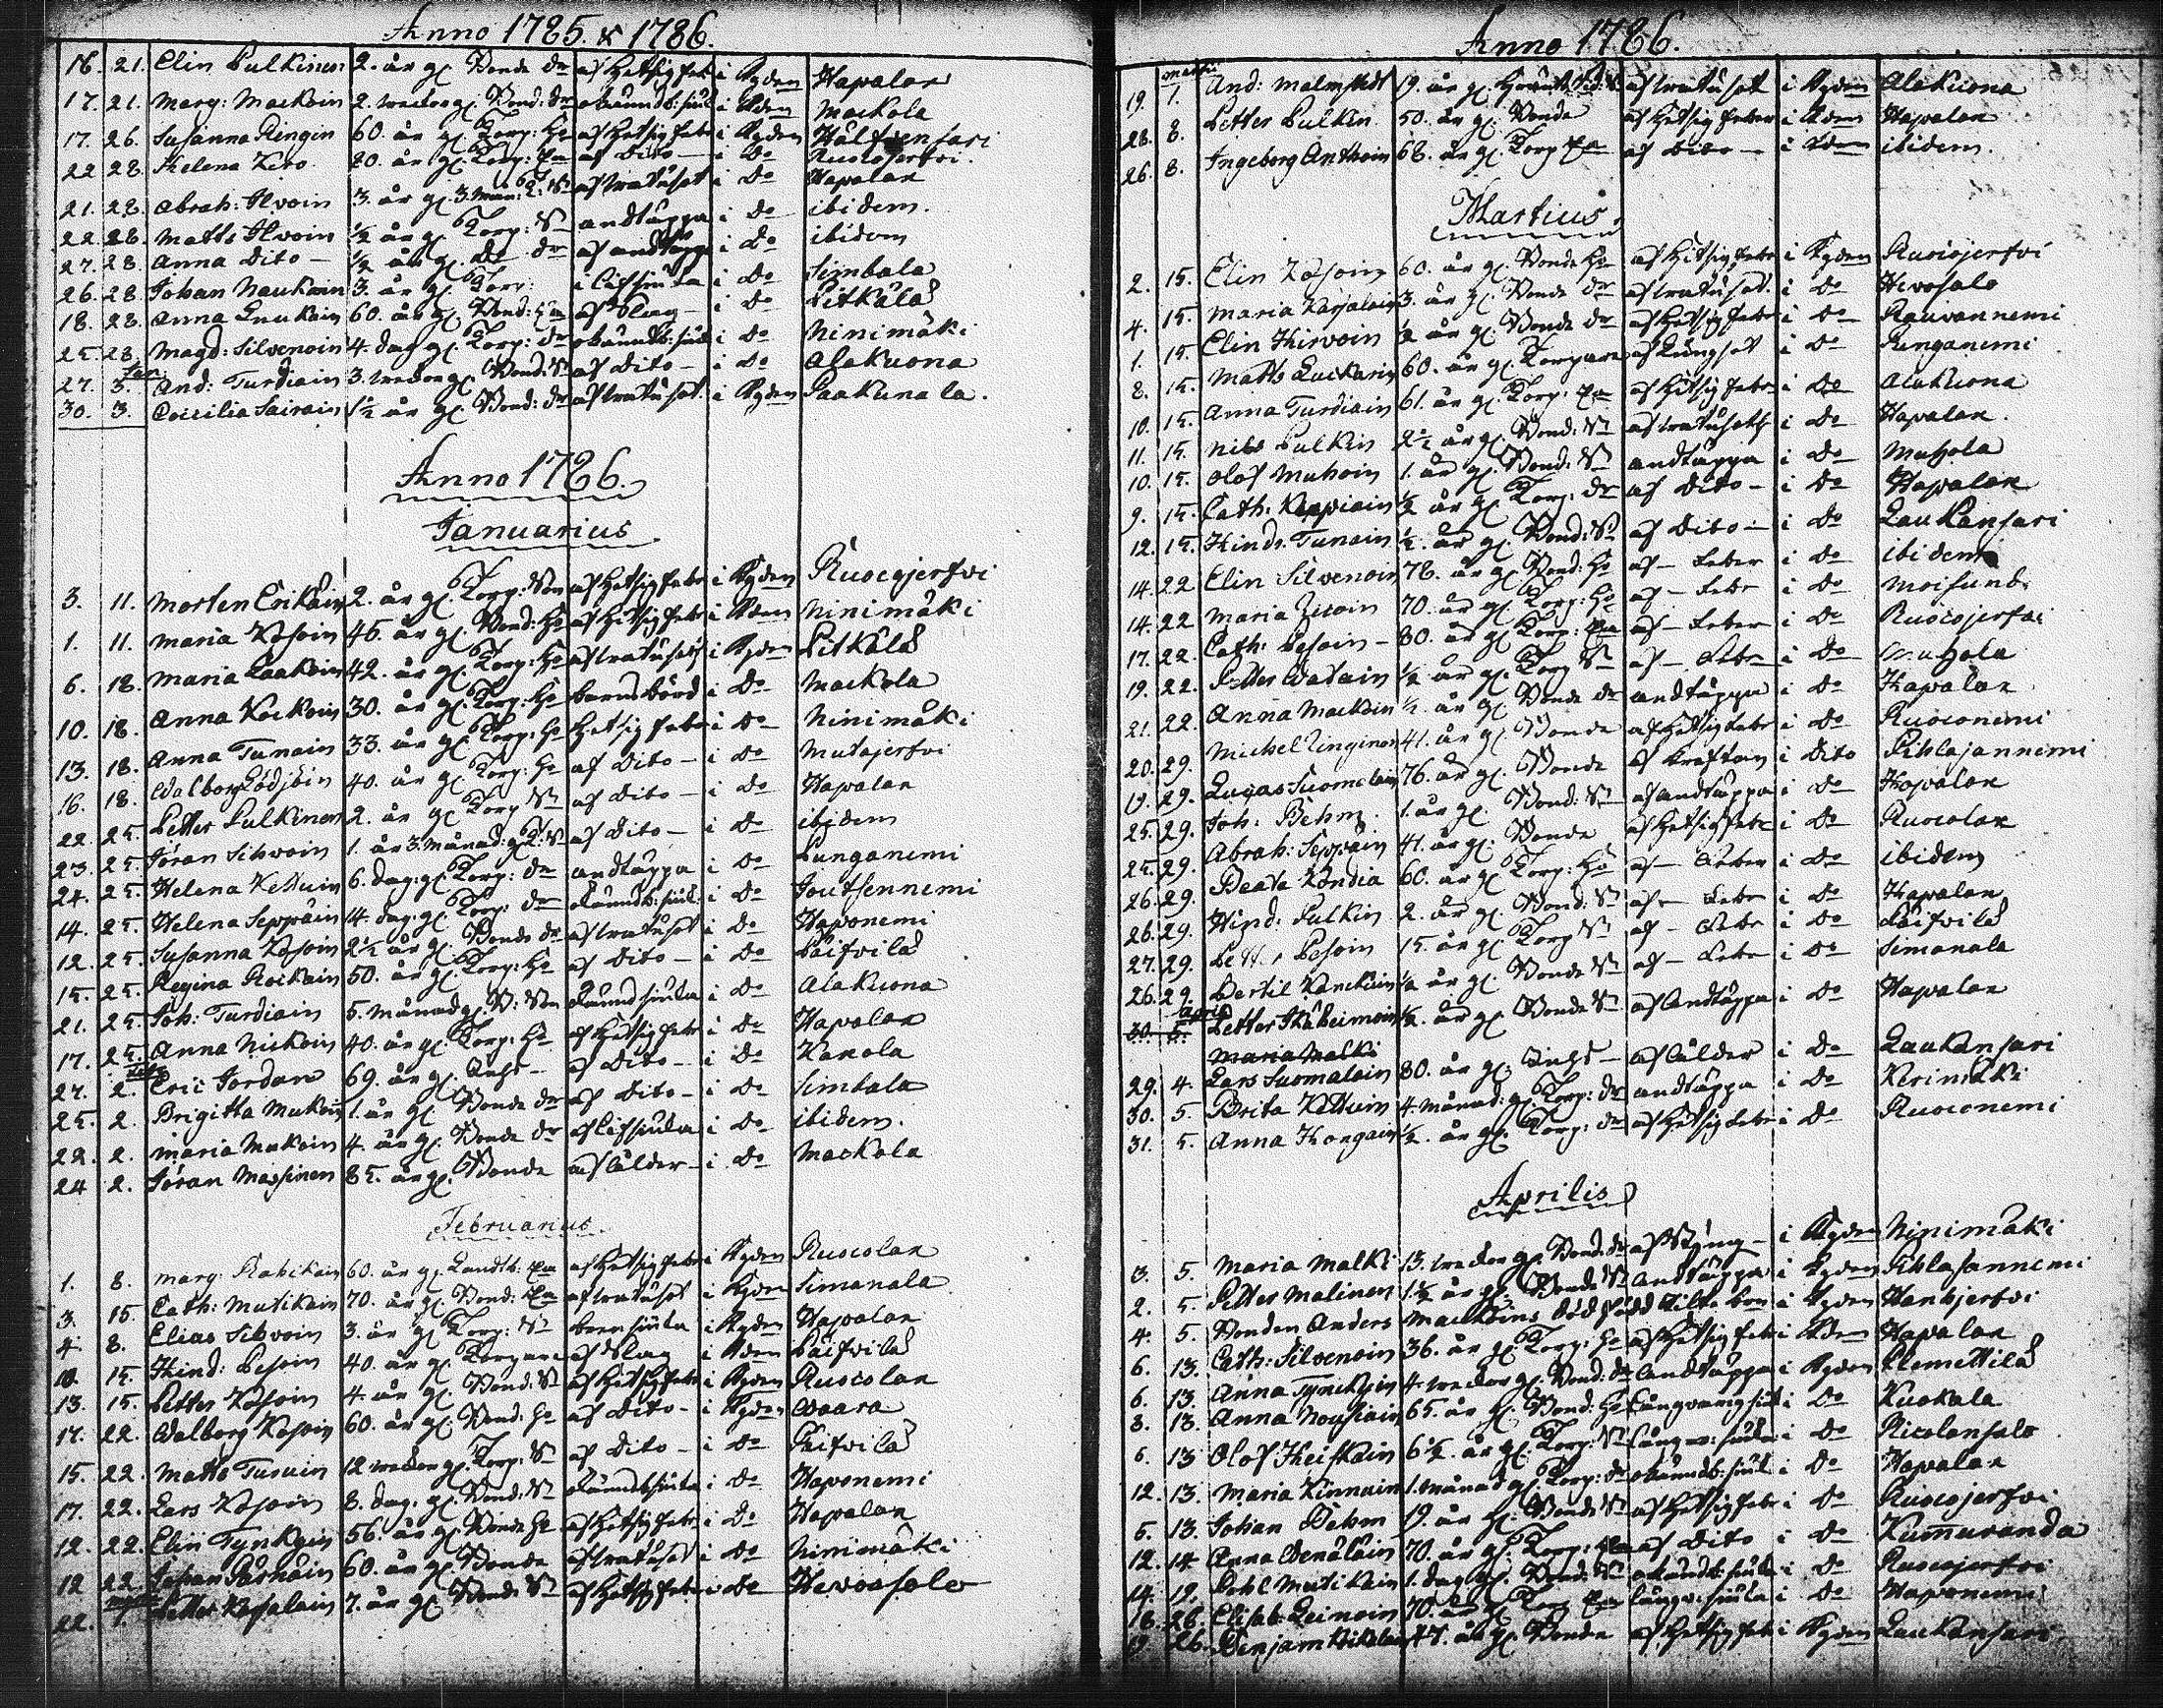 Anno 1785. & 1786.
16. 21. Elin Pulkinen 2. år gl. Bonde dr af hetsig feb. i Kyden Hapalax
17. 21. Marg: Mackoin 2. weckor gl. Bond: dr obekandt: siuk i Kden Mackola
17. 26. Susanna Ringin 60. år gl. Torp: Ho af hetsig febr i Kyden Hälfvensari
22 28. Helena Kito 80. år gl. Torp: Ea af Dito – i Do Ruocojerfvi.
21. 28. Abrah: Ilvoin 3. år gl. 3. mån: T: So af bråtuset i Do Hapalax
22. 28. Matts Ilvoin ½ år gl. Torp: Sn andtäppa i Do ibidem.
27. 28. Anna Dito – ½ år gl. Do dr af andtäppa i Do ibidem
26. 28 Johan Naukain 3. år gl. Torp: i lifsiuka i Do Simbala
18. 28. Anna Laukain 60. år gl. Bond: Ea af slag – i Do Pitkälä
25. 28. Magd: Silvenoin 4. dag gl. Torp: dr obekandt: siuk i Do Ninimäki
Jan
27. 3. And: Turdiain 3. weckor gl. Bond: Sn af Dito – i Do Alakuona
30. 3. Coecilia Sairain 1½ år gl. Bond: dr af bråtuset. i Kyden Paakunala.
Anno 1786.
Januarius
3. 11. Morten Erikäin 2. år gl. Torp: Son af hetsig febr i Kyden Ruocojerfvi
1. 11. Maria Kosoin 45. år gl. Bond: Ho af hetsig febr i Kden Ninimäki
6. 18. Maria Laakoin 42. år gl. Torp: Ho af bråtuset i Kyden Pitkälä
10. 18. Anna Kockoin 30. år gl. Torp: Ho barnsbörd i Do Mackola
13. 18. Anna Tunain 33. år gl. Torp: Ho hetsig febr i Do Ninimäki
16. 18. Walborg Lödjöin 40. år gl. Torp: Ho af Dito – i Do Mutajerfvi
22 25. Petter Pulkinen 2. år gl. Torp Sn af Dito – i Do Hapalax
23. 25. Jöran Sihvoin 1. år 3. månad: gl. T: Sn af Dito – i Do ibidem
24. 25. Helena Kettuin 6. dag: gl. Torp: dr andtäppa i Do Punganemi
14. 25. Helena Seppäin 14. dag: gl. Torp: dr okändt: siuk: i Do Joutsennemi
12. 25. Susanna Kosoin 2½ år gl. Bonde dr af bråtuset i Do Haponemi
15. 25. Regina Rockain 50. år gl. Torp: Ho af Dito – i Do Päifvilä
21. 25. Joh: Turdiain 5. månad gl. B: Son okänd siuka i Do Alakuona
17. 25. Anna Nickoin 40. år gl. Torp: Ho af hetsig febr i Do Hapalax
Febr
27. 2. Eric Jordan 69. år gl. – af Dito – i Do Kakola
25. 2. Brigitta Mukoin 1. år gl. Bonde dr af Dito – i Do Simbala
22. 2. Maria Mukain 4. år gl. Bonde dr af lifsiuka i Do ibidem.
24 2. Jöran Massinen 85. år gl. Bonde af ålder – i Do Mackola
Februarius
1. 8. Marg: Rahikain 60. år gl. Landtb: Ea af hetsig febr i Kyden Ruocolax
3. 15. Cath: Mutikain 70. år gl. Bond: Ea af bråtuset i Kyden Simanala
4. 8. Elias Sihvoin 3. år gl. Torp: Sn siuka i Kyden Hapalax
10. 15. Hind: Pesoin 40. år gl. Torpare af slag i Kden Päifvilä
13. 15. Petter Kosoin 4. år gl. Bond: Sn af hetsig febr i Kyden Ruocolax
17. 22. Walborg Kosoin 60. år gl. Bond: Ho af Dito – i Kyden Waara
15. 22. Matts Turuin 12 weckor gl. Torp: Sn af Dito – i Do Päifvilä
17. 22. Lars Kosoin 8. dag: gl. Bond: Sn okändt siuka i Do Haponemi
12. 22. Elin Tynkyin 56. år gl. Bonde Ho af hetsig febr i Do Hapalax
12 22. Johan Parnain 60. år gl. Bonde af bråtuset i Do Ninimäki
Martii
22. 1. Petter Karjalain 7. år gl. Bonde Sn af hetsig febr i Do Hevosalo
Anno 1786.
Martii
19. 1. And: Malmstedt 19. år gl. af bråtuset i Kyden Alakuona
28. 8. Petter Pulkin 50. år gl. Bonde af hetsig feber i Kden Hapalax
26. 8. Ingeborg Anthoin 68. år gl. Torp Ea af Dito – i Kden ibidem.
Martius.
2. 15. Elin Kosoin 60. år gl. Bonde Ho af hetsig febr i Kyden Ruocojerfvi
4. 15. Maria Karjalain 3. år gl. Bonde dr af bråtuset. i Do Hevosalo
1. 15. Elin Hirvoin ½ år gl. Bonde dr af hetsig febr i Do Rauvannemi
8. 15. Matts Luckarin 60. år gl. Torpare af Lungsot i Do Punganemi
10. 15. Anna Turdiain 61. år gl. Torp: Ea af hetsig febr i Do Alakuona
11. 15. Nils Pulkin 2½ år gl. Bond: Sn af bråtuset i Do Hapalax.
10. 15. Olof Muhoin 1. år gl. Bond: Sn andtäppa i Do Muhola
9. 15. Cath: Keppiain ½ år gl. Torp: dr af Dito – i Do Hapalax
12. 15. Hindr. Tunain ½ år gl. Bond: Sn af Dito – i Do Laukansari
14. 22 Elin Silvenoin 78. år gl. Bond: Ho af – Feber i Do ibidem
14. 22 Maria Zitoin 70. år gl. Torp: Ho af – Febr i Do Moisunb.
17. 22. Cath: Pesoin – 80. år gl. Torp: Ea af – Feber i Do Ruocojerfvi
19. 22. Petter Watain ½ år gl. Torp Sn af – Febr i Do Muhola
21. 22. Anna Mackoin ½ år gl. Bonde dr andtäppa i Do Hapalax
20. 29. Michel Ringinen 41. år gl. Bonde af hetsig febr i Do Ruoconemi
19. 29. Lucas Suomalain 76. år gl. Bonde af kräftan i Dito Pihlajannemi
25. 29. Joh: Behm. 1. år gl. Bond: Sn af andtäppa i Do Hapalax
25. 29. Abrah: Seppäin 41. år gl. Bonde af hetsig febr i Do Ruocolax
26. 29. Beata Kondia 60. år gl. Torp: Ho af – Feber i Do ibidem
26. 29. Hind: Pulkin 2. år gl. Bond: Sn af – Febr i Do Hapalax
27. 29. Petter Pesoin 15. år gl. Torp Sn af – Febr i Do Päifvilä
26. 29. Bertil Kanckain ½ år gl. Bonde Sn af – Febr i Do Simanala
April
30. 5. Petter Ikäheimoin ½ år gl. Bonde Sn af Andtäppa i Do Hapalax
Maria Malki
29. 4. Lars Suomalain 80. år gl. – af ålder i Do Laukansari
30. 5. Brita Kettuin 4. månad: gl. Torp: dr andtäppa i Do Kerimäki
31. 5. Anna Kongain ½ år gl. Torp: dr af hetsig febr i Do Ruoconemi
Aprilis
3. 5. Maria Malki 13. weckor gl. Bond: dr af styng – i Kyden Ninimäki
2. 5. Petter Malinen 1½ år gl. Bonde Sn andtäppa i Kyden Pihlajannemi
4. 5. Bonden Anders Mackoins dödfödd barn i Kyden Hankjerfvi
6. 13. Cath: Silvenoin 36. år gl. Torp: Ho af hetsig febr i Kden Hapalax
6. 13. Anna Tynckyin 4. weckor gl. Bond: dr andtäppa i Kyden Klemettilä
8. 13. Anna Nousiain 65. år gl. Bond: Ho Långvarig siuk i Do Kuokala
6. 13 Olof Heiskain 6½ år gl. Torp: Sn Långv: siuka i Do Nicolansalo
12. 13. Maria Kinnuin 1. månad gl. Torp: dr okändt: siuk i Do Hapalax
5. 13. Johan Behm 19. år gl. Bonde Sn af hetsig febr i Do Ruocojerfvi
12. 14. Anna Wenäläin 70. år gl. Torp: Ea af Dito i Do Kumuranda
14. 19. Pohl Mutikain 1. dag gl. Bond: Sn okändt: siuka i Do Ruocojerfvi
16. 26. Elisab: Leinoin 70. år gl. Torp Ea långv: siuka i Do Haponemi
19. 26. Benjam Kikolain 47. år gl. Bonde af hetsig febr i Kyden Laukansari